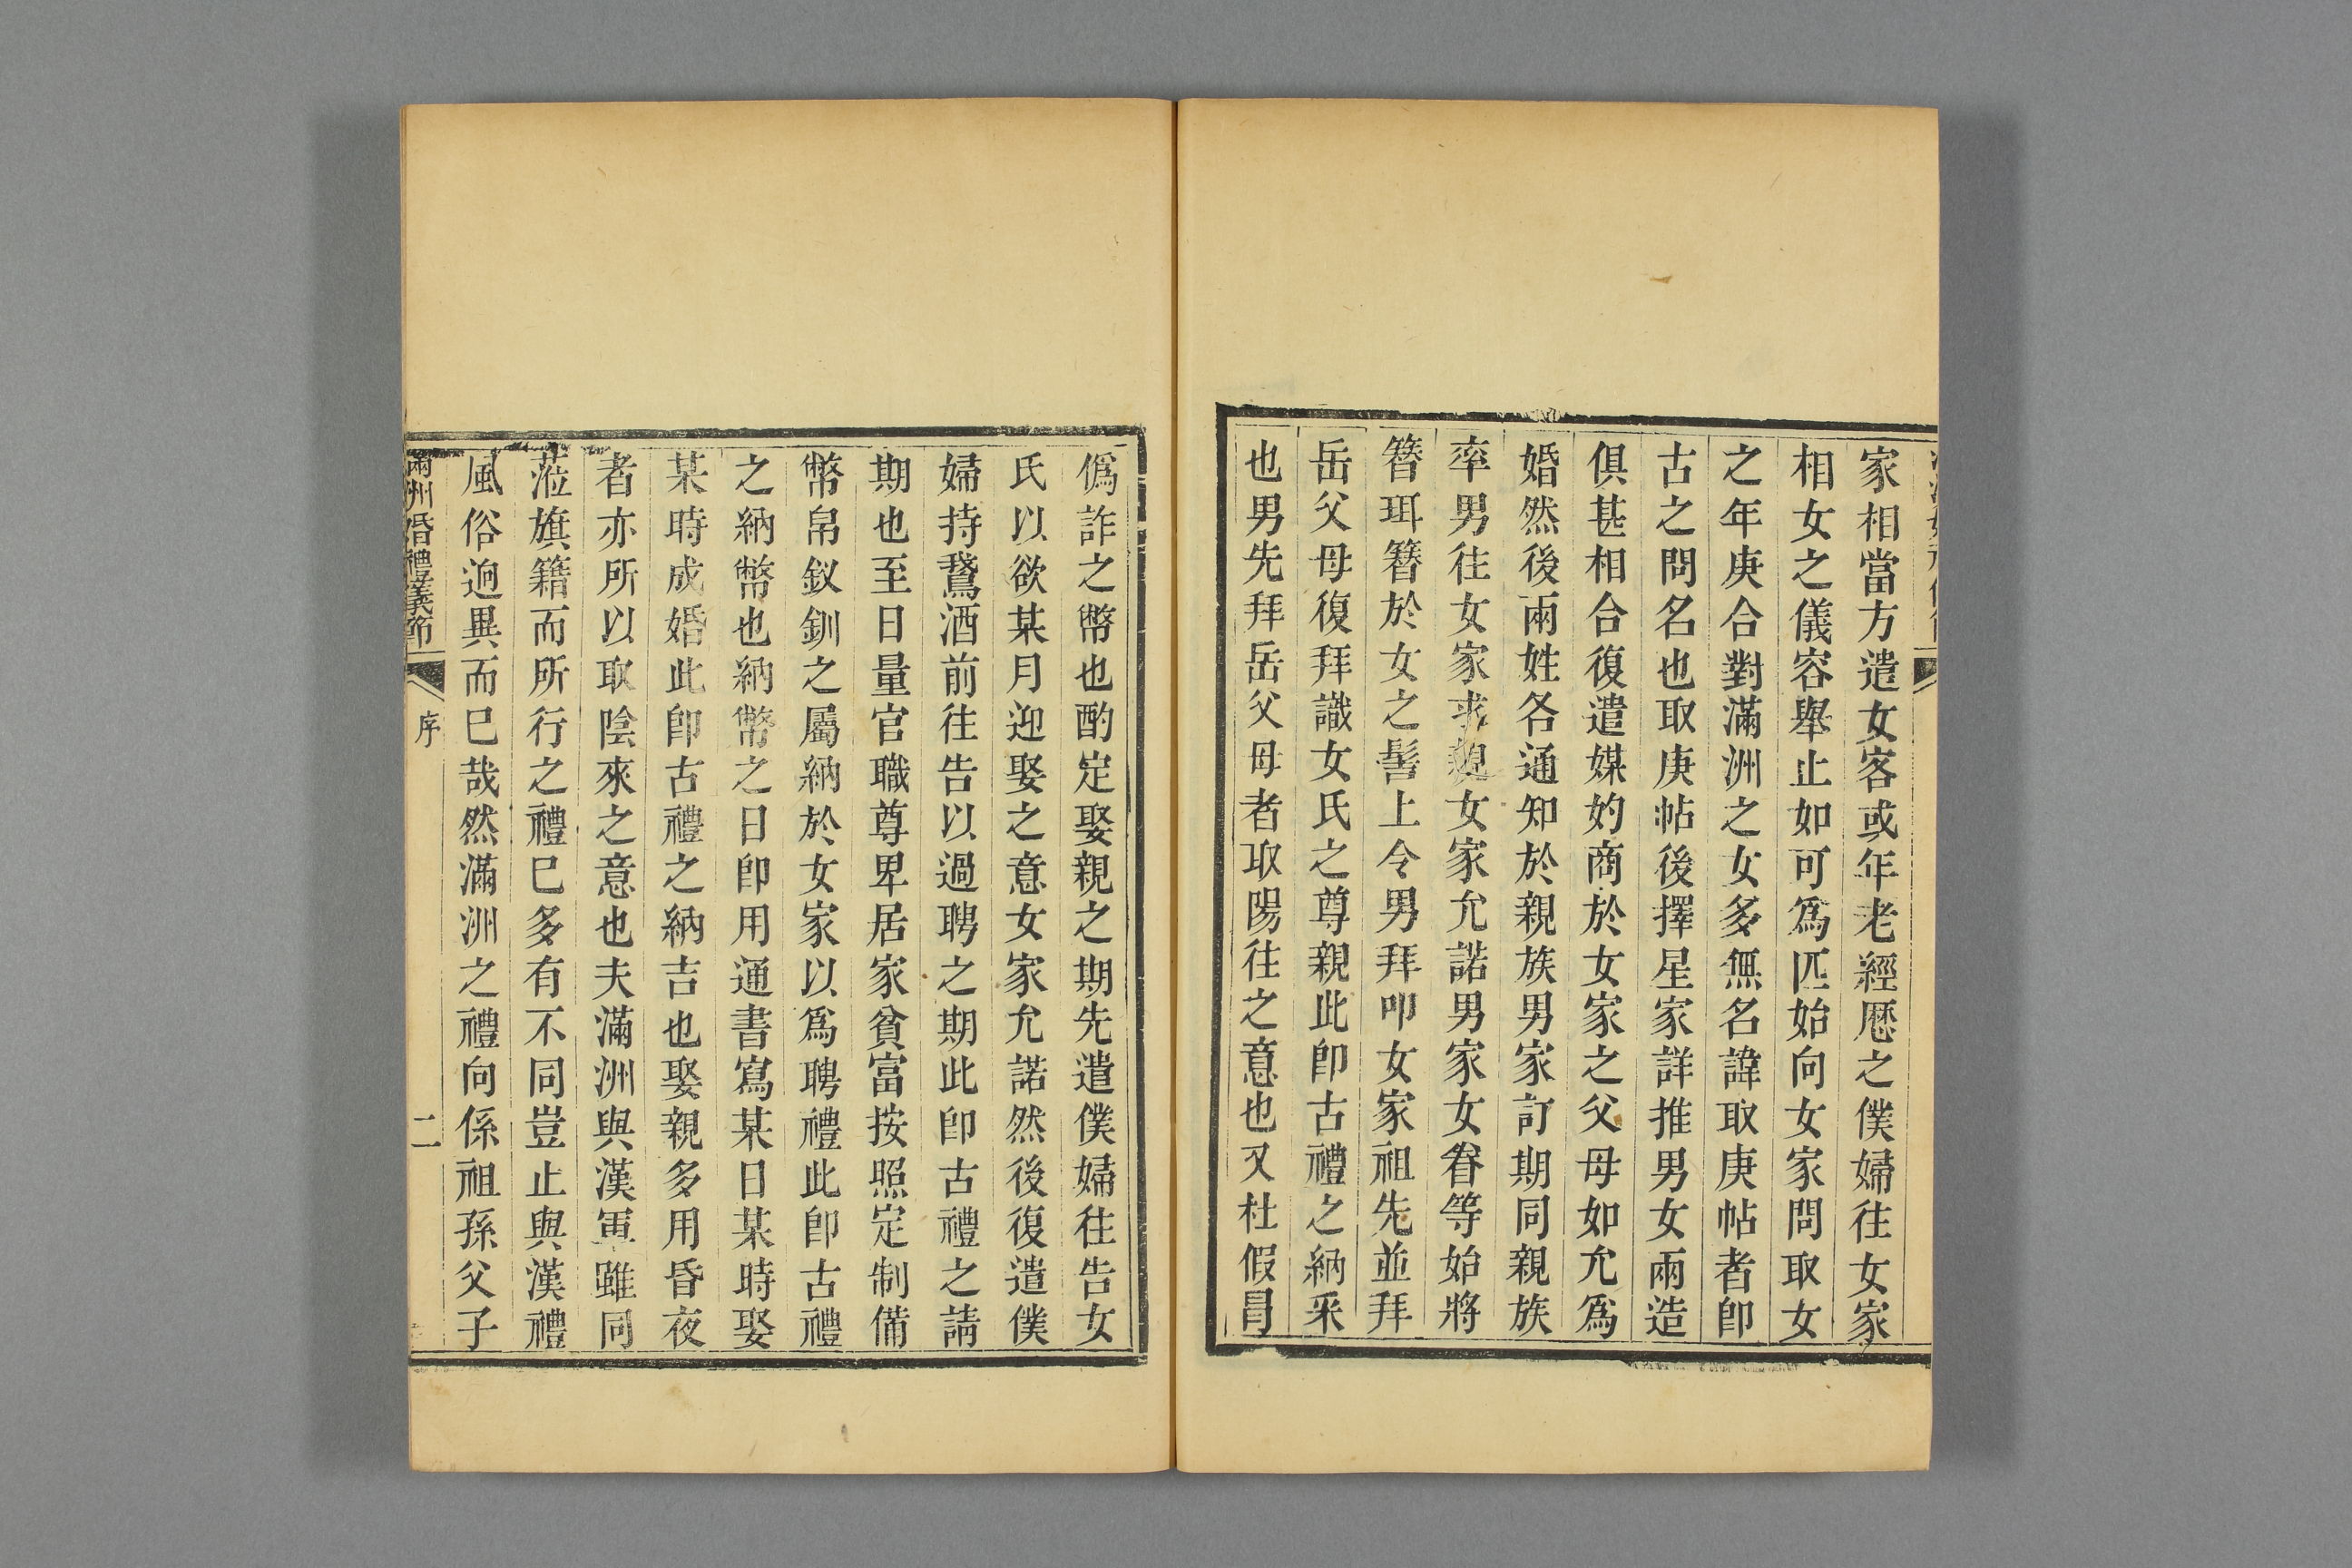 家相當方遣女客或年老經歷之僕婦往女家
相女之儀容舉止如可爲匹始向女家問取女
之年庚合對滿洲之女多無名諱取庚帖者卽
古之問名也取庚帖後擇星家詳推男女兩造
俱甚相合復遣媒妁商於女家之父母如允爲
婚然後兩姓各通知於親族男家訂期同親族
率男往女家求親女家允諾男家女眷等始將
簪珥簪於女之髻上令男拜叩女家祖先並拜
岳父母復拜識女氏之尊親此卽古禮之納采
也男先拜岳父母者取陽往之意也又杜假冐
僞詐之幣也酌定娶親之期先遣僕婦往告女
氏以欲某月迎娶之意女家允諾然後復遣僕
婦持鵞酒前往告以過聘之期此卽古禮之請
期也至日量官職尊卑居家貧富按照定制備
幣帛釵釧之屬納於女家以爲聘禮此卽古禮
之納幣也納幣之日卽用通書寫某日某時娶
某時成婚此卽古禮之納吉也娶親多用昏夜
者亦所以取陰來之意也夫滿洲與漢軍雖同
蒞旗籍而所行之禮已多有不同豈止與漢禮
風俗逈異而已哉然滿洲之禮向係祖孫父子
洲婚禮儀節 序 二